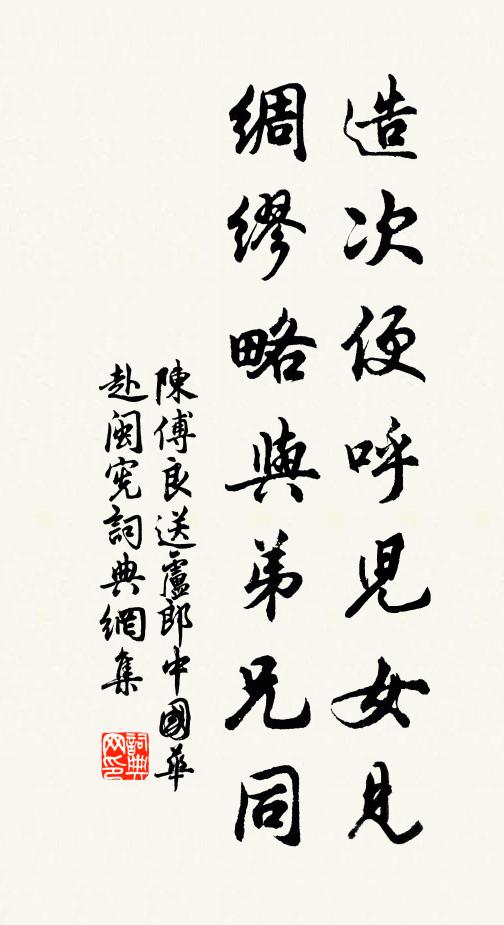 造次便呼兒女見
綢繆略與弟兄同
陳傅良送盧郎中國華
赴閩憲詞典網集
詞典网印